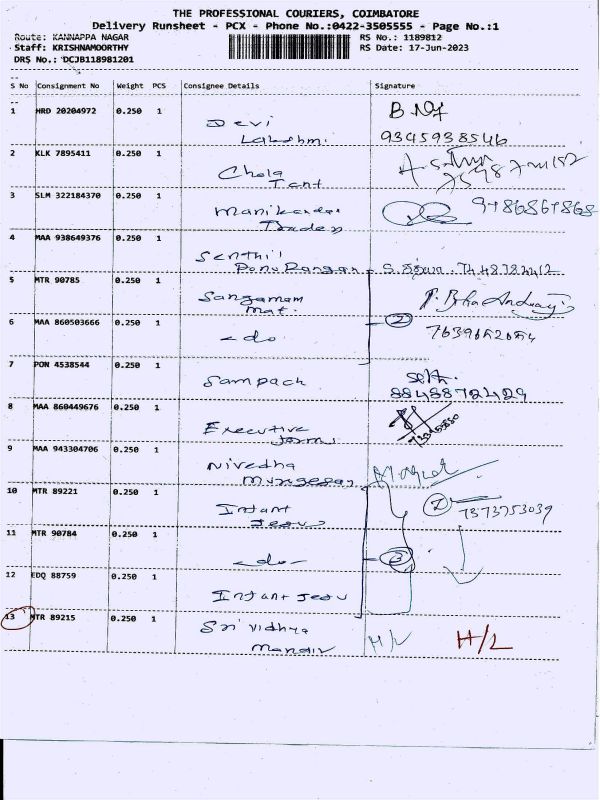 THE PROFESSIONAL COURIERS, COIMBATORE
Delivery Runsheet - PCX - Phone No.:0422-3505555 - Page No.:1
Route: KANNAPPA NAGAR RS No.: 1189812
Staff: KRISHNAMOORTHY RS Date: 17-Jun-2023
DRS No.: DCJB118981201
S No Consignment No Weight PCS Consignee Details Signature
1 HRD 20204972 0.250 1 Devi
Lakshmi 9345938546
2 KLK 7895411 0.250 1 Chola
3 SLM 322184370 0.250 1 Manikandan
Traders
4 MAA 938649376 0.250 1 Senthil
5 MTR 90785 0.250 1 Sangamam
Mat.
6 MAA 860503666 0.250 1 -do- 2
7639652654
7 PON 4538544 0.250 1 Sampach
8848872429
8 MAA 860449676 0.250 1 Executive
9 MAA 943304706 0.250 1 Nivedha
Murugesan
10 MTR 89221 0.250 1 Infant
Jesus 7373753039
11 MTR 90784 0.250 1 -do- 3
12 EDQ 88759 0.250 1 Infant Jesu
13 MTR 89215 0.250 1 Sri Vidhya
Mandir H/L H/L